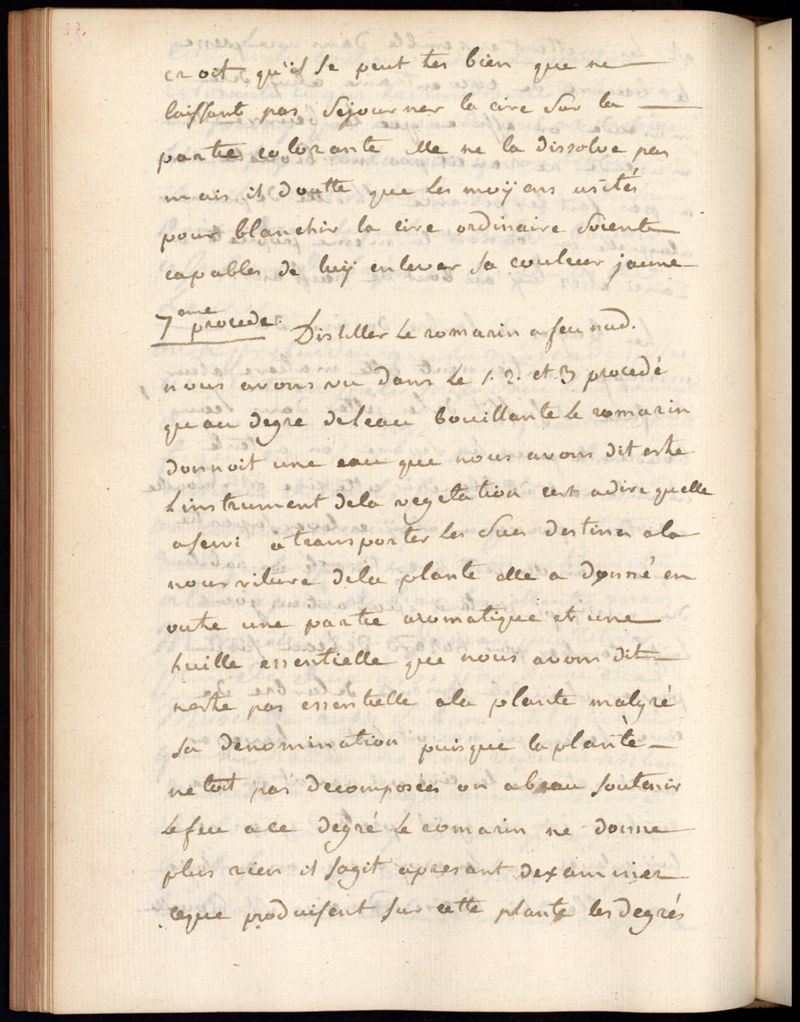 croit qu'il se peut tes bien que ne
laissant pas sejourner la cire sur la
partie colorante elle ne la dissolve pas
mais il doutte que les moÿens usités
pour blanchir la cire ordinaire soient
capables de luÿ enlever sa couleur jaune
7eme procede. Distiller le romarin a feu nud.
nous avons vu dans le 1. 2. et 3 procedé
qu'au degre de leau bouillante le romarin
donnoit une eau que nous avons dit estre
linstrument dela vegetation cest adire quelle
a servi a transporter les sucs destines ala
nourriture dela plante elle a donné en
outre une partie aromatique et une
huille essentielle que nous avons dit
nestre pas essentielle ala plante malgré
sa denomination puisque laplante
netoit pas decomposees on abeau soutenir
le feu ace degré le romarin ne donne
plus rien il sagit apresent dexaminer
ceque produisent sur cette plante les degrés